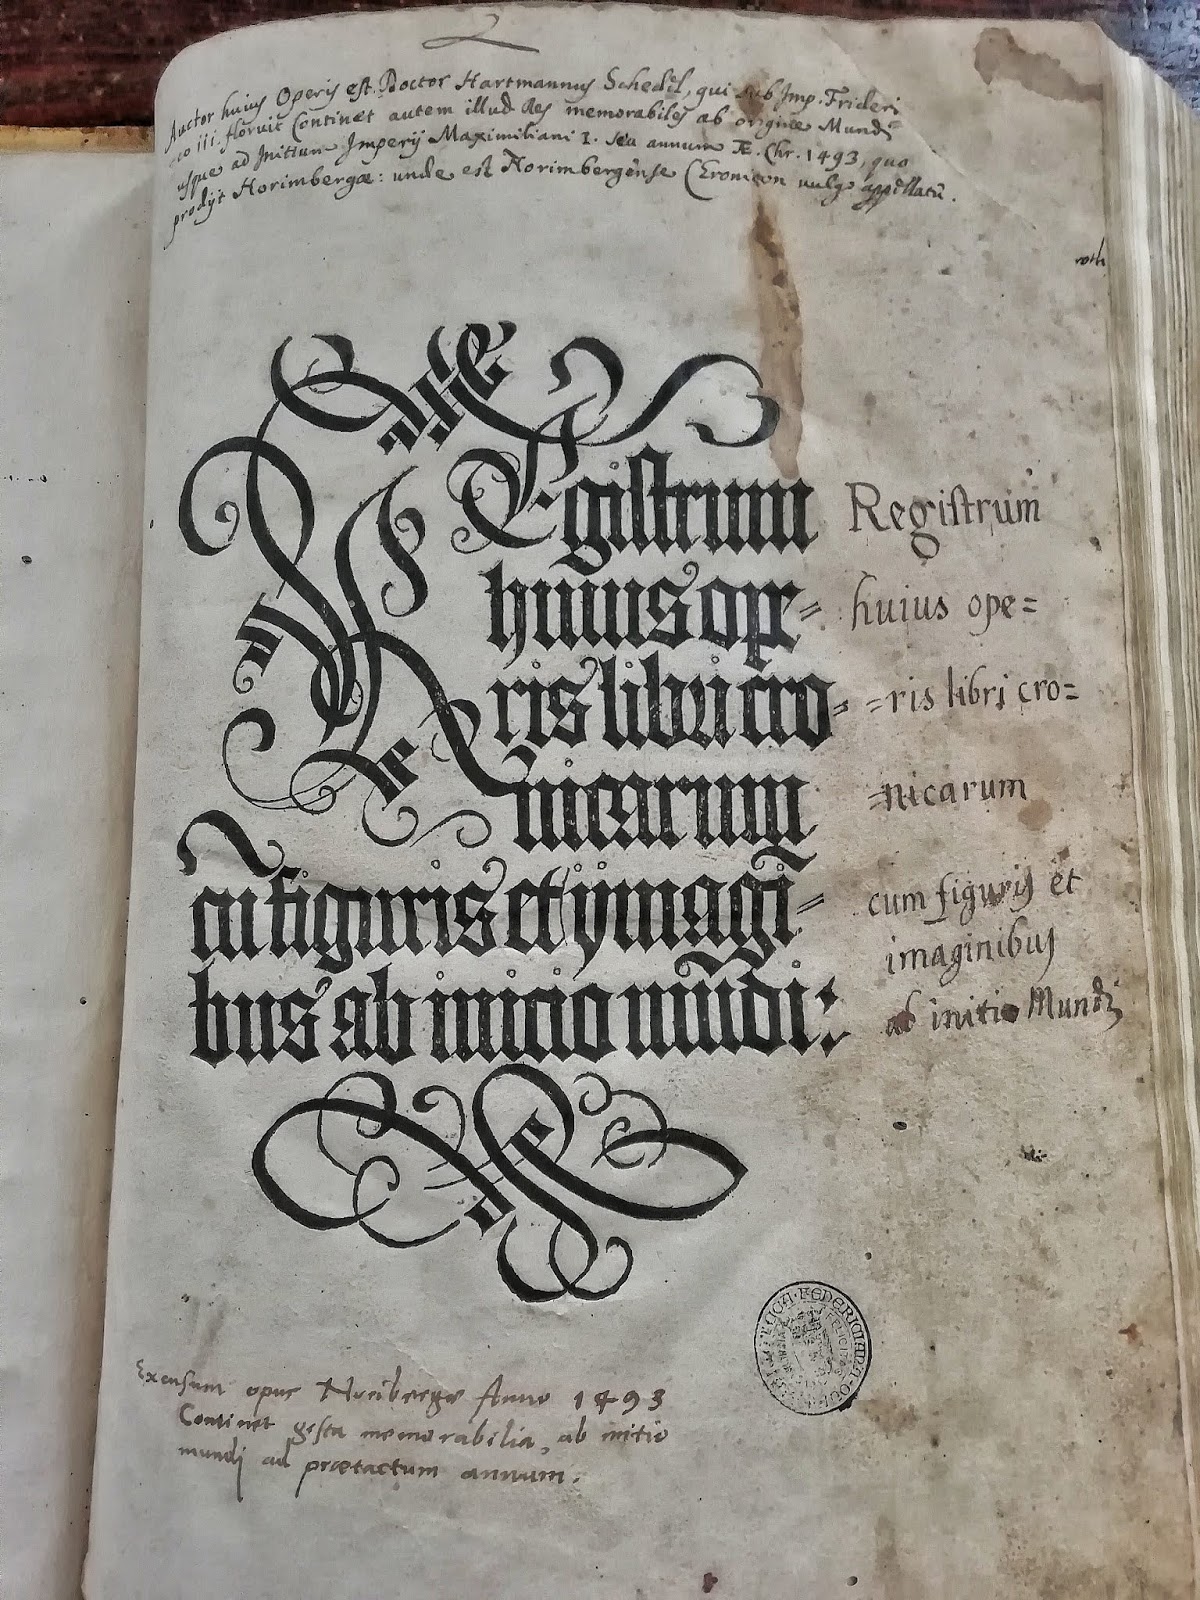 Auctor huius Operis est Doctor Hartmannus Schedel, qui sub Imp. Frideri
co III. floruit Continet autem illud Res memorabiles ab origine Mundi
usque ad Initium Imperij Maximiliani I. seu annum Æ. Chr. 1493, quo
prodijt Norimbergæ: unde est Norimbergense Chronicon vulgo appellatū.
roth
REgistrum Registrum
huius ope= huius ope=
ris libri cro= =ris libri cro=
nicarum =nicarum
cū figuris et ymagī= cum figuris et
imaginibus
bus ab inicio mūdi: ab initio Mundi
Excusum opus Nuribergæ Anno 1493
Continet gesta memorabilia, ab initio
mundi ad prætactum annum.
FEDERICIANA